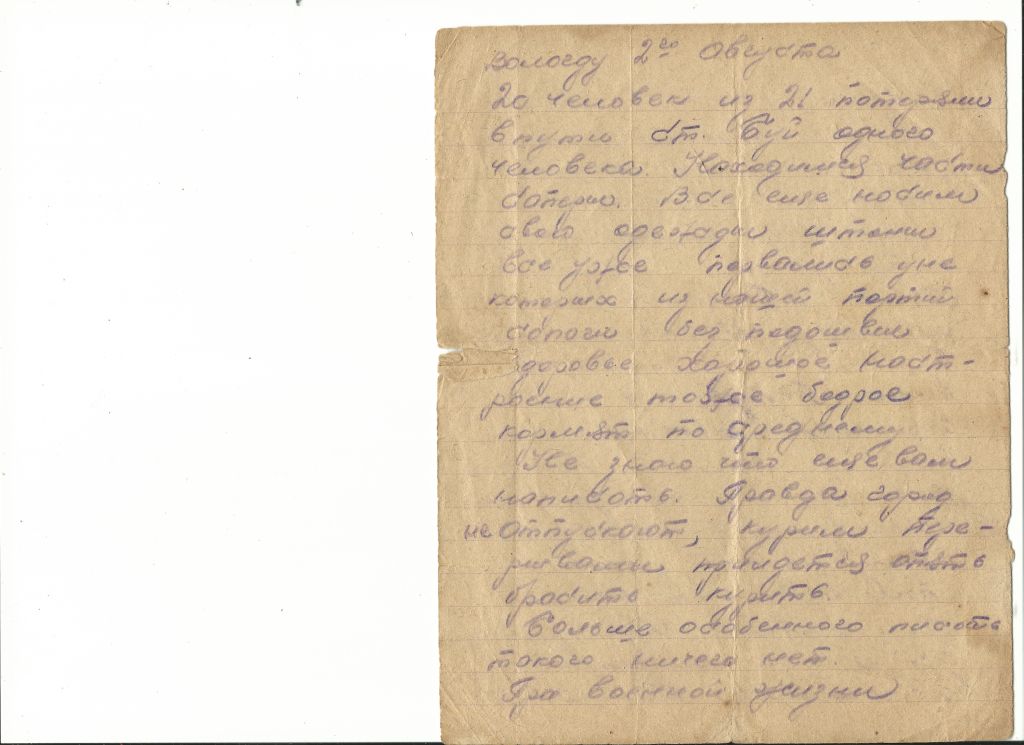 Вологду 2го Августа
20 человек из 21 потеряли
в пути ст. Буй одного
человека. Находимся части
саперно. Все еще носим
свою одежди штани
все уже порвались у не
которих из нашей партии
сапоги без подошви
здоровье хорошое наст-
роение тоже бодрое
кормят по среднему
Не знаю что еще вам
написать. Правда город
не отпускают, курим пере-
ривами прийдется опять
бросить курить.
Больше особенного писать
такого ничего нет.
При военной жизни